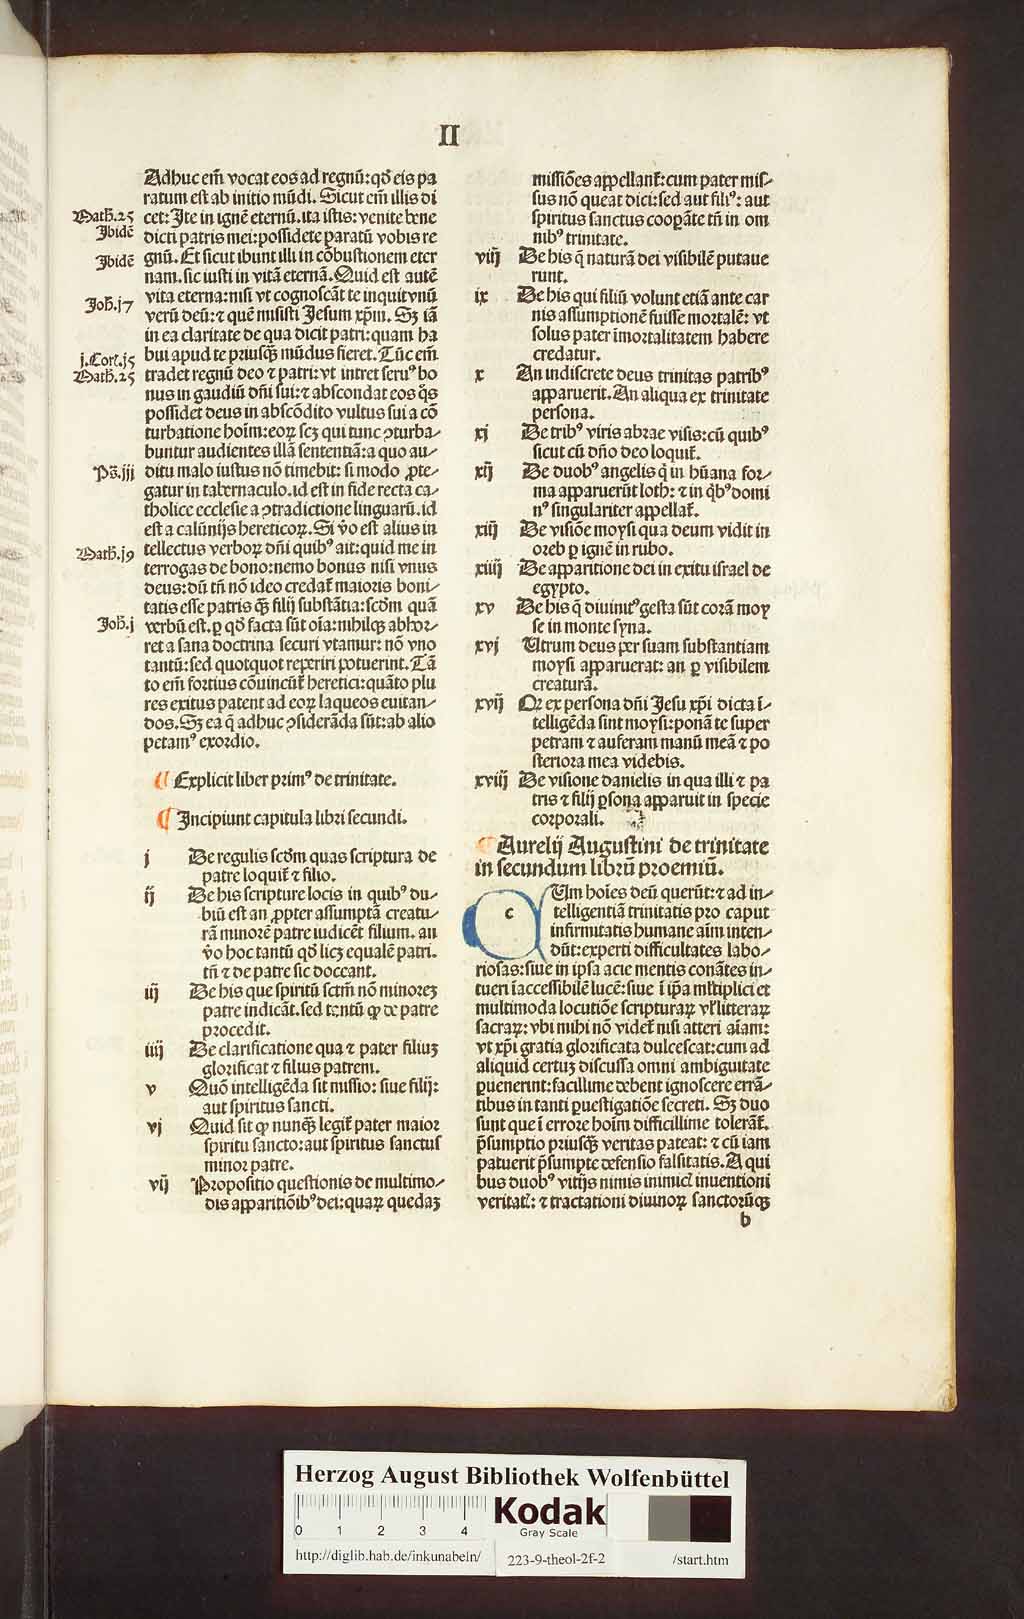 II
Adhuc em̄ vocat eos ad regnū: qd̄ eis pa
ratum est ab initio mūdi. Sicut em̄ illis di
Math̄.25
cet: Ite in ignē eternū. ita istis: venite bene
Ibidē
dicti patris mei: possidete paratū vobis re
Ibidē
gnū. Et sicut ibunt illi in cōbustionem eter
nam. sic iusti in vitā eternā. Quid est autē
Joh̄.j7
vita eterna: nisi vt cognoscāt te inquit vnū
verū deū: ⁊ quē misisti Jesum xp̄m. Sꝫ iā
in ea claritate de qua dicit patri: quam ha
j.Corī.j5
bui apud te priusqȝ mūdus fieret. Tūc em̄
Math̄.25
tradet regnū deo ⁊ patri: vt intret seruꝰ bo
nus in gaudiū dn̄i sui: ⁊ abscondat eos q̊s
possidet deus in abscōdito vultus sui a cō
turbatione hoīm: eoꝝ scꝫ qui tunc ꝯturba⸗
buntur audientes illā sententiā: a quo au⸗
Ps̄.iij
ditu malo iustus nō timebit: si modo ꝓte⸗
gatur in tabernaculo. id est in fide recta ca⸗
tholice ecclesie a ꝯtradictione linguarū. id
est a calūnijs hereticoꝝ. Si v̊o est alius in
Math̄.j9
tellectus verboꝝ dn̄i quibꝰ ait: quid me in
terrogas de bono: nemo bonus nisi vnus
deus: dū tn̄ nō ideo credat̄ maioris boni⸗
tatis esse patris qȝ filij substātia: scd̄m quā
Joh̄.j
verbū est. ꝑ qd̄ facta sūt oīa: nihilqȝ abhor⸗
ret a sana doctrina securi vtamur: nō vno
tantū: sed quotquot reperiri potuerint. Tā
to em̄ fortius cōuincūt̄ heretici: quāto plu
res exitus patent ad eoꝝ laqueos euitan⸗
dos. Sꝫ ea q̄ adhuc ꝯsiderāda sūt: ab alio
petamꝰ exordio.
¶ Explicit liber primꝰ de trinitate.
¶ Incipiunt capitula libri secundi.
j De regulis scd̄m quas scriptura de
patre loquit̄ ⁊ filio.
ij De his scripture locis in quibꝰ du⸗
biū est an ꝓpter assumptā creatu⸗
rā minorē patre iudicēt filium. an
v̊o hoc tantū qd̄ licꝫ equalē patri.
tn̄ ⁊ de patre sic doccant.
iij De his que spiritū sctm̄ nō minoreꝫ
patre indicāt. sed tantū ꝙ de patre
procedit.
iiij De clarificatione qua ⁊ pater filiuꝫ
glorificat ⁊ filius patrem.
v Quō intelligēda sit missio: siue filij:
aut spiritus sancti.
vj Quid sit ꝙ nunqȝ legit̄ pater maior
spiritu sancto: aut spiritus sanctus
minor patre.
vij Propositio questionis de multimo⸗
dis apparitiōibꝰ dei: quaꝝ quedaꝫ
missiōes appellant̄: cum pater mis⸗
sus nō queat dici: sed aut filiꝰ: aut
spiritus sanctus cooꝑāte tn̄ in om
nibꝰ trinitate.
viij De his q̄ naturā dei visibilē putaue
runt.
ix De his qui filiū volunt etiā ante car
nis assumptionē fuisse mortalē: vt
solus pater īmortalitatem habere
credatur.
x An indiscrete deus trinitas patribꝰ
apparuerit. An aliqua ex trinitate
persona.
xj De tribꝰ viris abrae visis: cū quibꝰ
sicut cū dn̄o deo loquit̄.
xij De duobꝰ angelis q̇ in hūana for⸗
ma apparuerūt loth: ⁊ in q̇bꝰ domi
nꝰ singulariter appellat̄.
xiij De visiōe moysi qua deum vidit in
oreb ꝑ ignē in rubo.
xiiij De apparitione dei in exitu israel de
egypto.
xv De his q̄ diuinitꝰ gesta sūt corā moy
se in monte syna.
xvj Utrum deus per suam substantiam
moysi apparuerat: an ꝑ visibilem
creaturā.
xvij Qr ex persona dn̄i Jesu xp̄i dicta ī⸗
telligēda sint moysi: ponā te super
petram ⁊ auferam manū meā ⁊ po
steriora mea videbis.
xviij De visione danielis in qua illi ⁊ pa
tris ⁊ filij ꝑsona apparuit in specie
corporali.
¶ Aurelij Augustini de trinitate
in secundum librū proemiū.
c Um hoīes deū querūt: ⁊ ad in⸗
telligentiā trinitatis pro caput
infirmitatis humane aīm inten⸗
dūt: experti difficultates labo⸗
riosas: siue in ipsa acie mentis conātes in⸗
tueri īaccessibilē lucē: siue ī ip̄a ml̄tiplici et
multimoda locutiōe scripturaꝝ vl̓ litteraꝝ
sacraꝝ: vbi mihi nō videt̄ nisi atteri aīam:
vt xp̄i gratia glorificata dulcescat: cum ad
aliquid certuꝫ discussa omni ambiguitate
ꝑuenerint: facillime debent ignoscere errā⸗
tibus in tanti ꝑuestigatiōe secreti. Sꝫ duo
sunt que ī errore hoīm difficillime tolerāt̄.
p̄sumptio priusqȝ veritas pateat: ⁊ cū iam
patuerit p̄sumpte defensio falsitatis. A qui
bus duobꝰ vitijs nimis inimicī inuentioni
veritatī: ⁊ tractationi diuinoꝝ sanctorūqȝ
b
Herzog August Bibliothek Wolfenbüttel
0 1 2 3 4
Kodak
Gray Scale
http://diglib.hab.de/inkunabeln/ 223-9-theol-2f-2 /start.htm